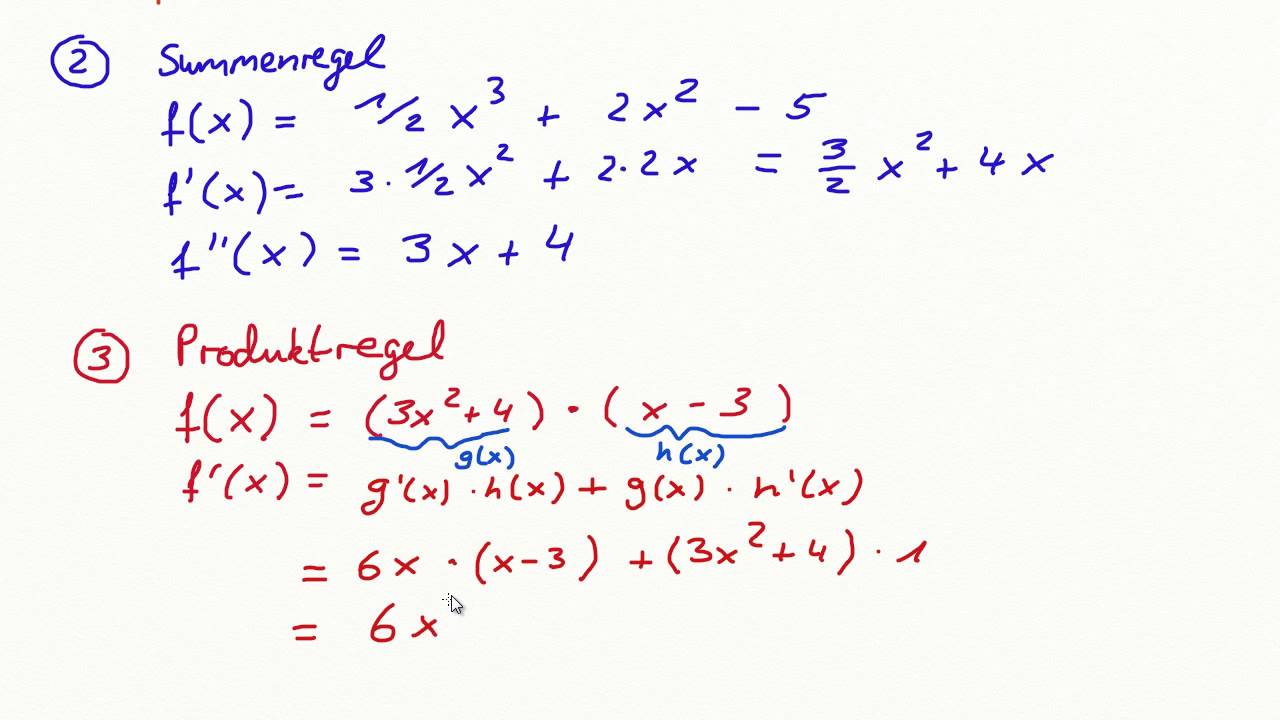 ② Summenregel
f(x) = 1/2 x³ + 2x² - 5
f'(x) = 3 · 1/2 x² + 2 · 2x = 3/2 x² + 4x
f''(x) = 3x + 4
③ Produktregel
f(x) = (3x² + 4) · (x - 3)
g(x) h(x)
f'(x) = g'(x) · h(x) + g(x) · h'(x)
= 6x · (x - 3) + (3x² + 4) · 1
= 6x